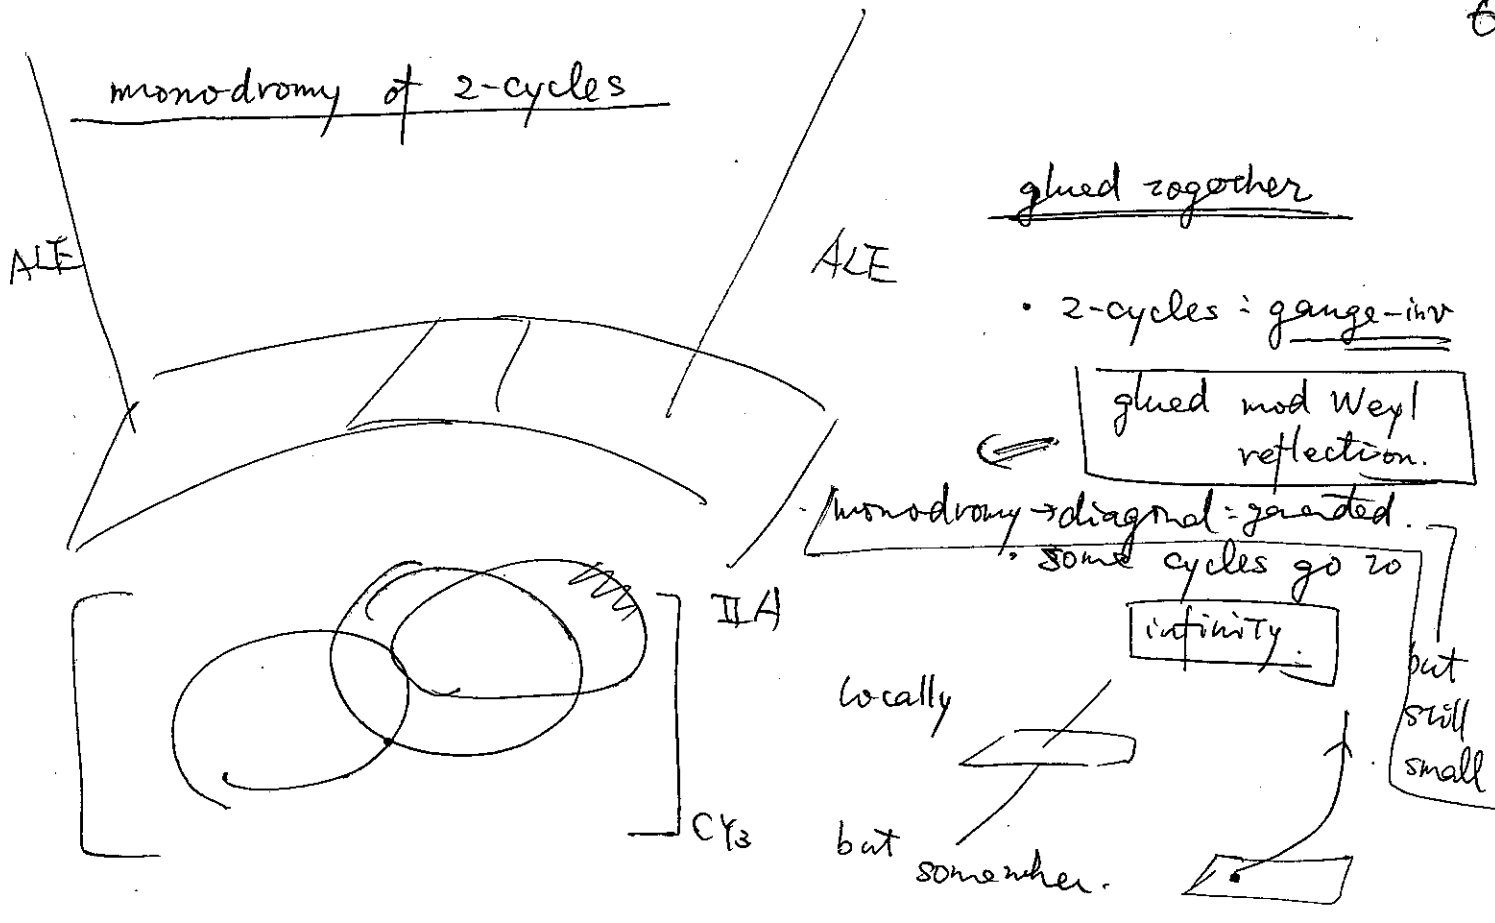 6
monodromy of 2-cycles
glued together
ALE
ALE
• 2-cycles : gauge-inv
glued mod Weyl
reflection.
monodromy → diagonal = gauated.
• some cycles go to
infinity.
but
still
small
IIA
CY3
locally
but
somewher.